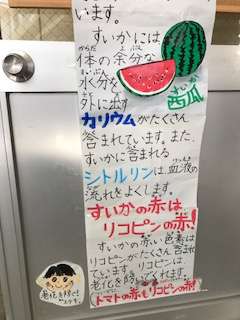 います。
すいかには
体の余分な
水分を
外に出す
西瓜
カリウムがたくさん
含まれています。また、
すいかに含まれる
シトルリンは、血液の
流れをよくします。
すいかの赤は
リコピンの赤!
すいかの赤い色素は
リコピンがたくさん含まれ
ています。リコピンは、
老化を防いでくれます。
トマトの赤もリコピンの赤!
老化を防ぐ!